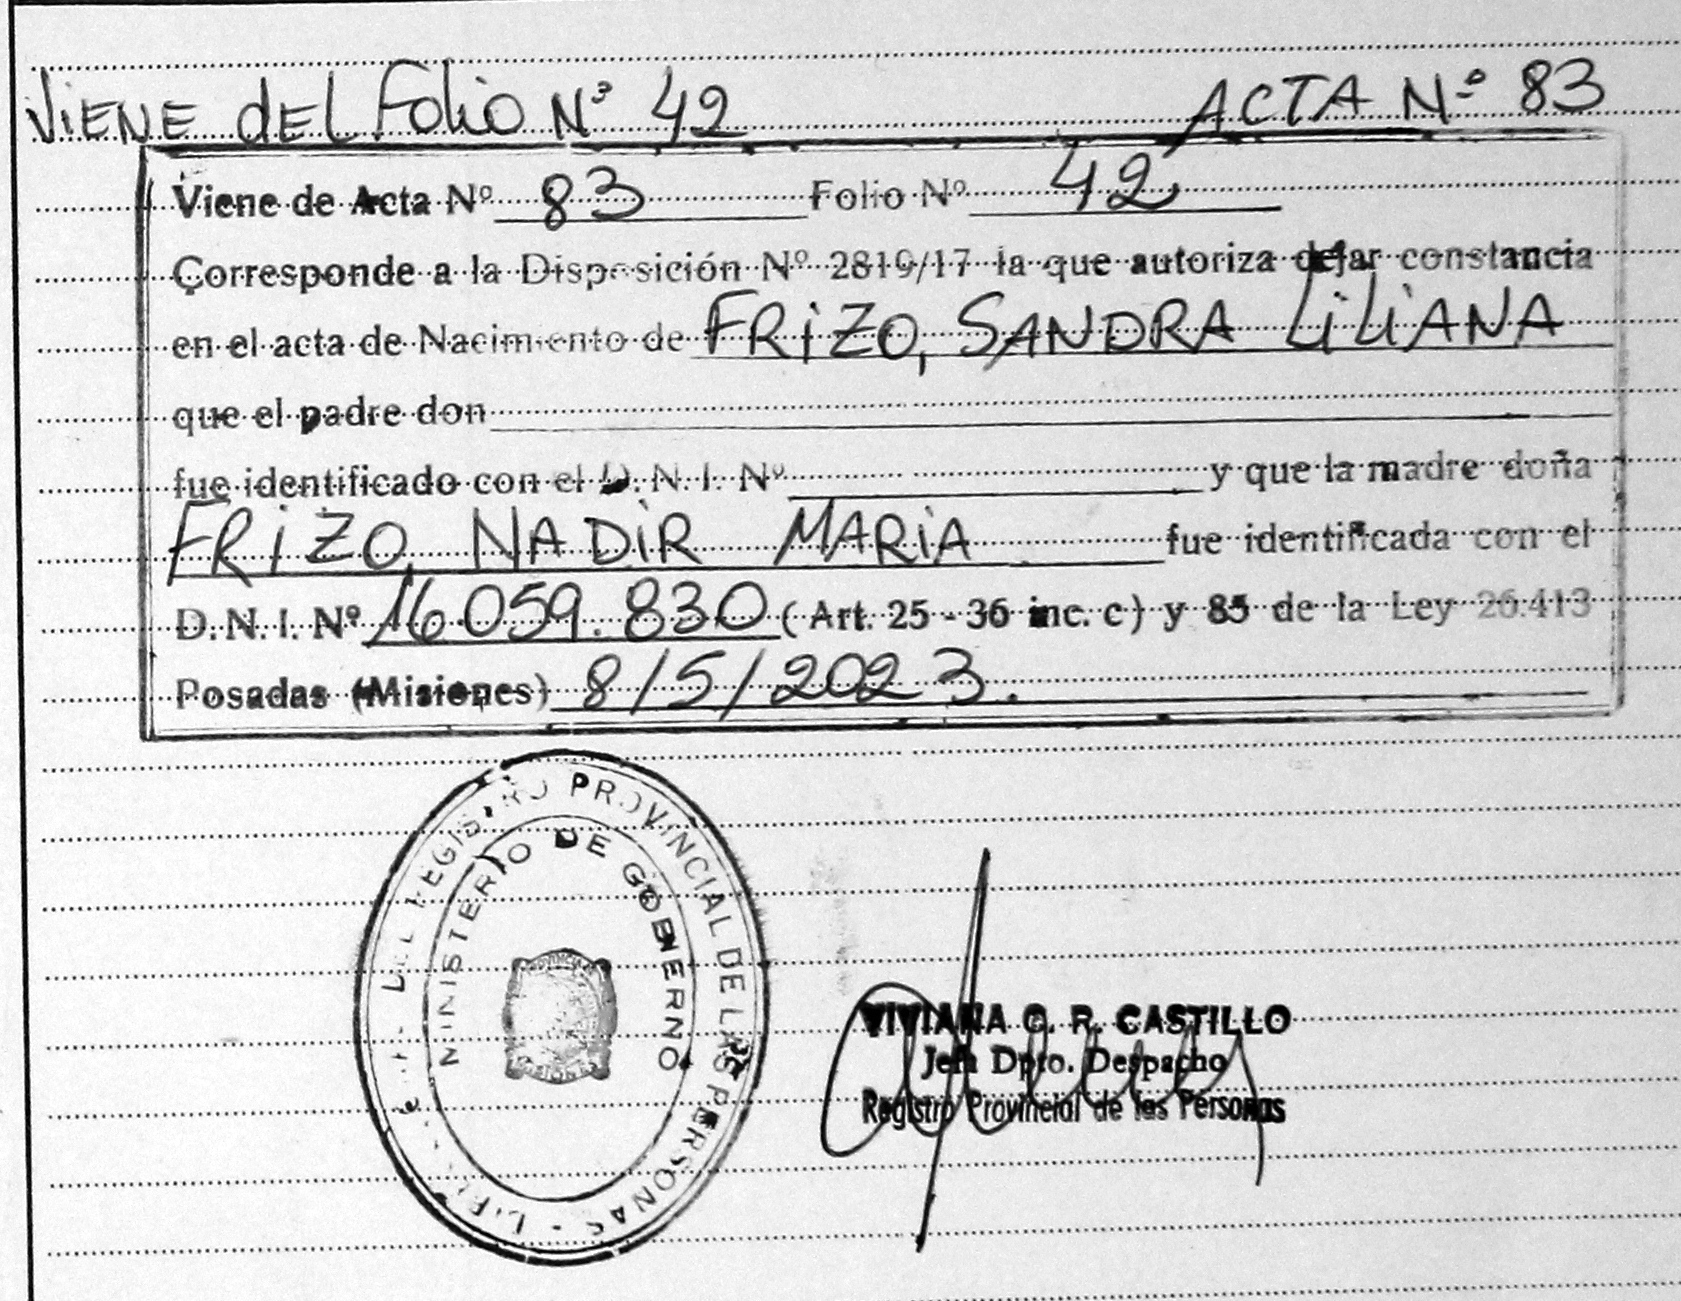 ViENE dEL Folio Nº 42 ACTA Nº 83
Viene de Acta Nº 83 Folio Nº 42
Corresponde a la Disposición Nº 2819/17 la que autoriza dejar constancia
en el acta de Nacimiento de FRiZO, SANDRA LiLiANA
que el padre don
fue identificado con el D. N. I. Nº y que la madre doña
FRiZO, NADiR MARiA fue identificada con el
D. N. I. Nº 16.059.830 (Art. 25 - 36 inc. c) y 85 de la Ley 26.413
Posadas (Misiones) 8/5/2023.
REGISTRO PROVINCIAL DE LAS PERSONAS
MINISTERIO DE GOBIERNO
VIVIANA G. R. CASTILLO
Jefa Dpto. Despacho
Registro Provincial de las Personas